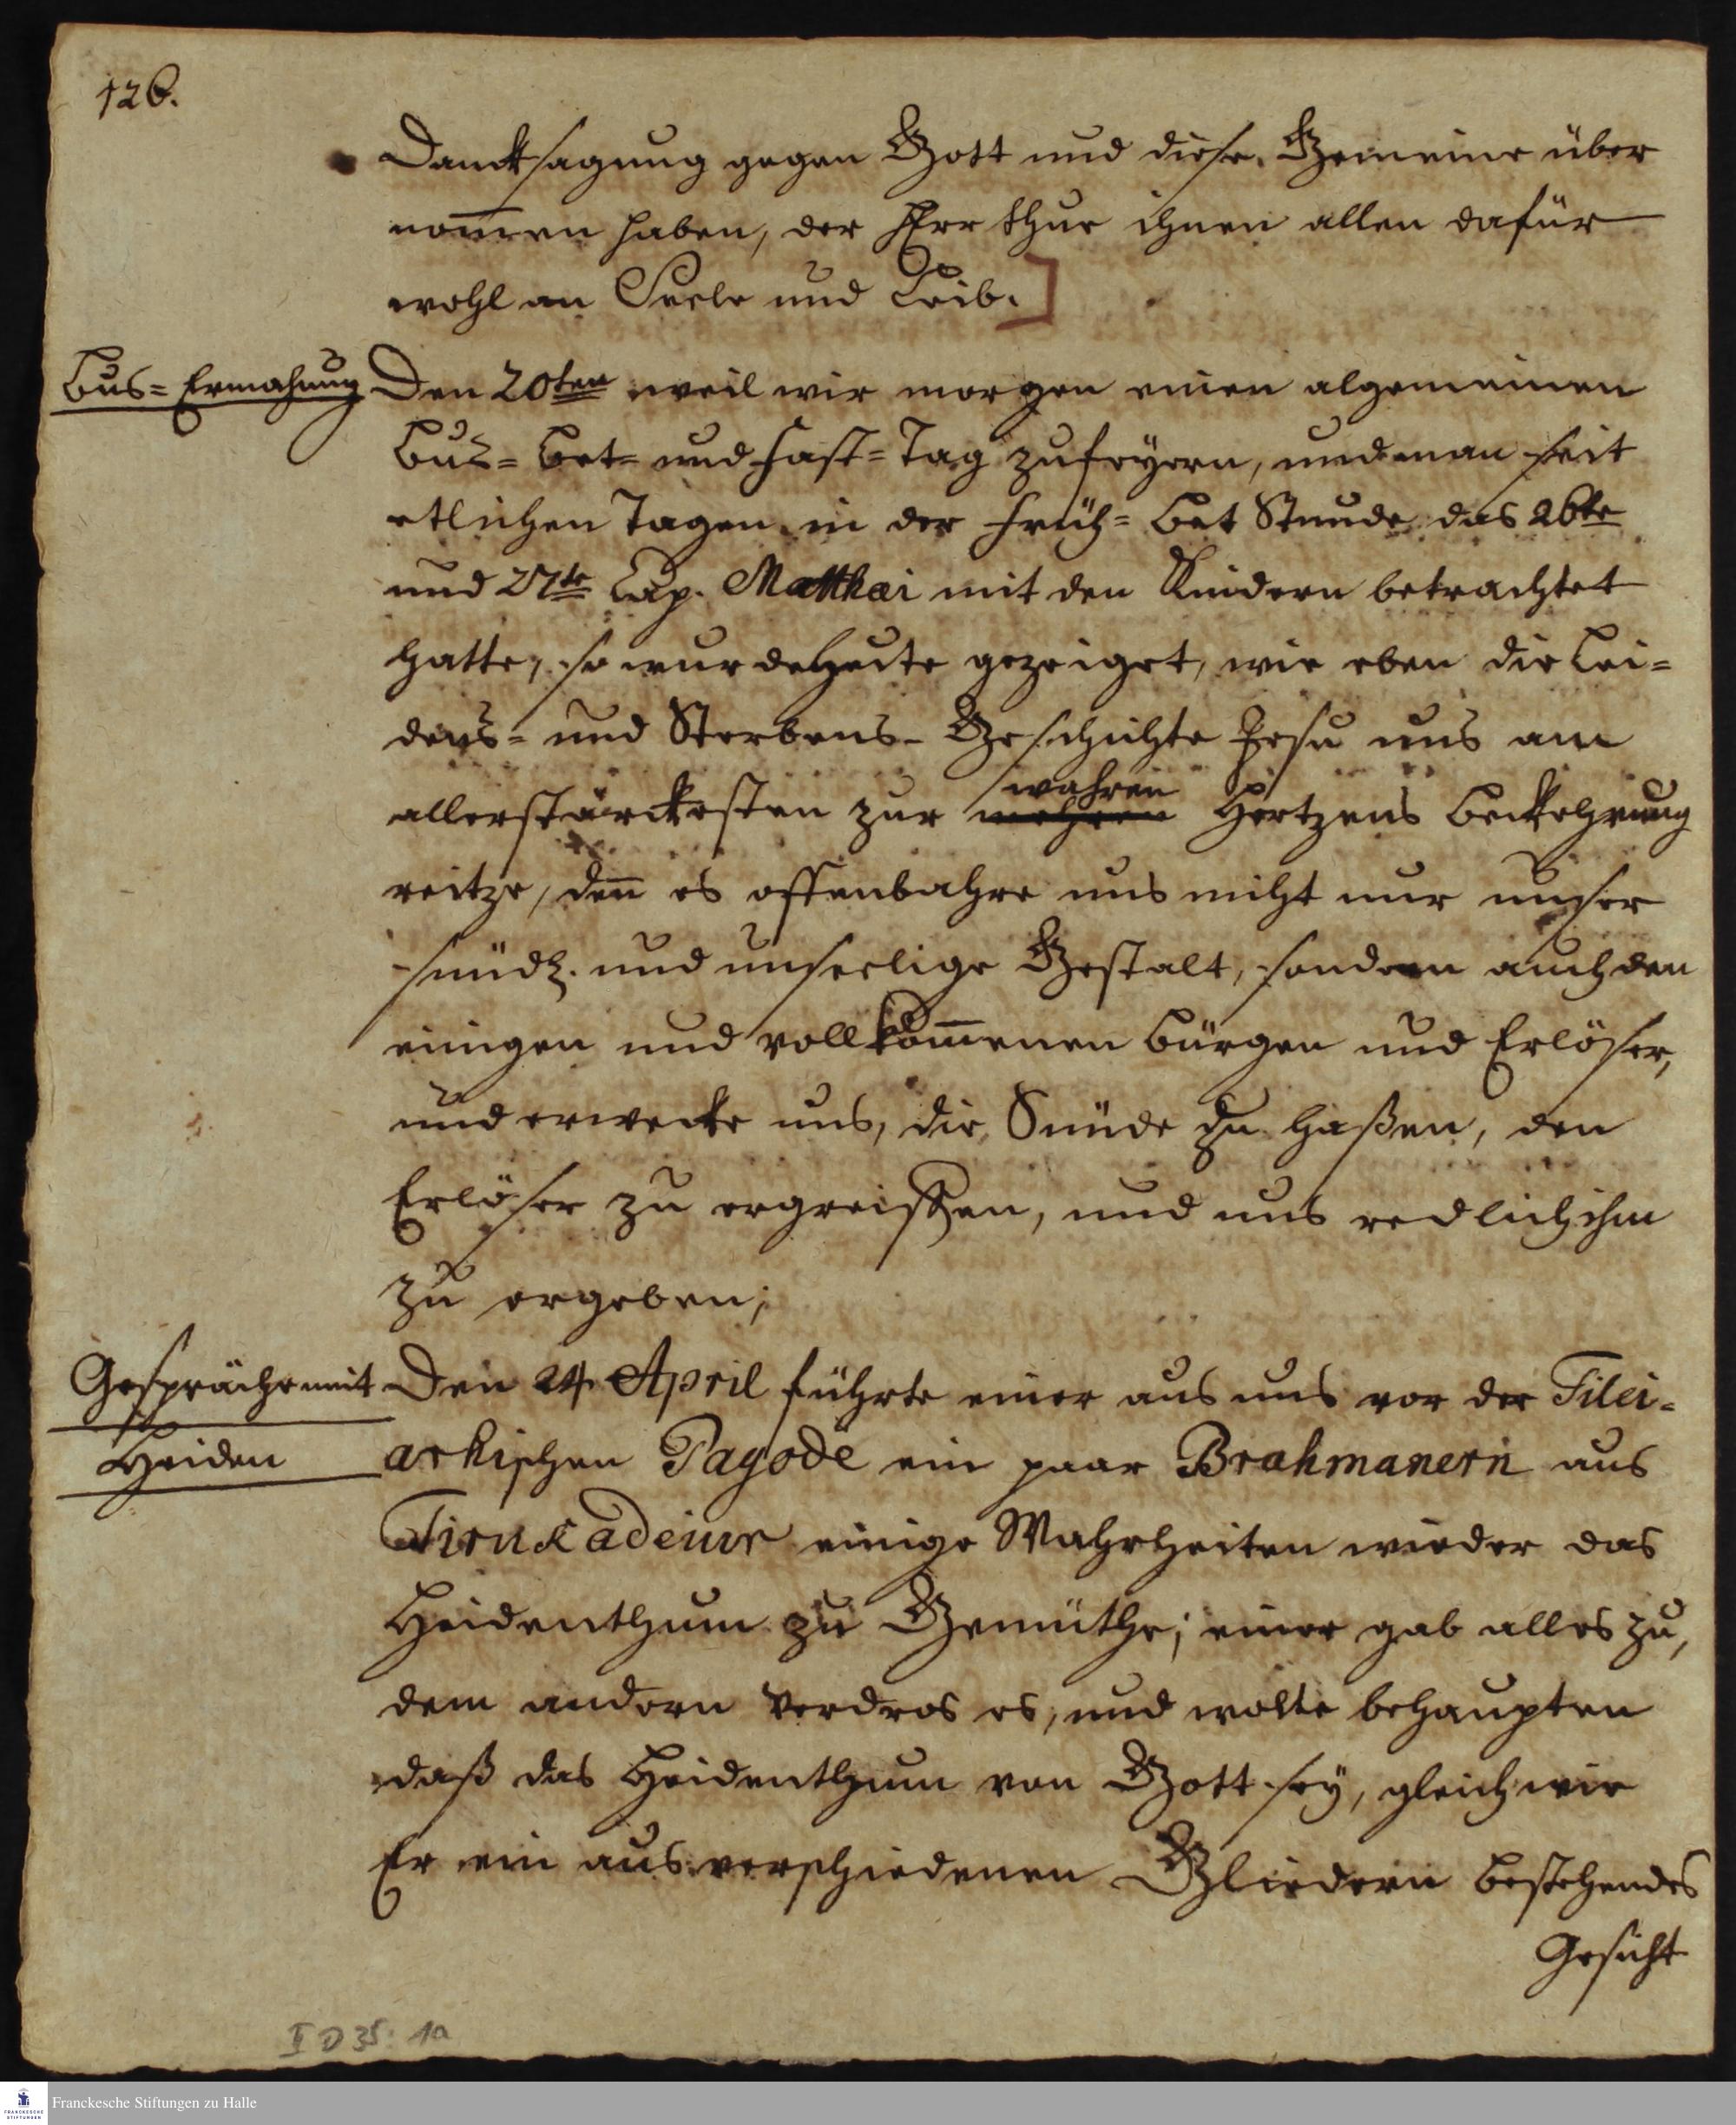 126.
Dancksagung gegen Gott und diese Gemeine über
nom̅en haben, der HErr thue ihnen allen dafür
wohl an Seele und Leib.]
Bus= Ermahnung
Den 20ten weil wir morgen einen algemeinen
Bus= Bet= und Fast= Tag zufeyern, und man seit
etlichen Tagen in der Früh= Bet Stunde das 26te
und 27te Cap. Matthæi mit den Kindern betrachtet
hatte, so wurde heute gezeiget, wie eben die Lei=
dens= und Sterbens- Geschichte Jesu uns am
wahren
allerstärckesten zur Hertzens Beckehrung
reitze, den̅ es offenbahre uns nicht nur unser
sündl. und unseelige Gestalt, sondern auch den
einigen und vollkom̅enen Bürgen und Erlöser,
und erwecke uns, die Sünde zu haßen, den
Erlöser zu ergreiffen, und uns redlich ihm
zu ergeben;
Gespräche mit
Heiden
Den 24. April führte einer aus uns vor der Tilei-
arhischen Pagode ein paar Brahmanern aus
Tirukadeiur einige Wahrheiten wieder das
Heidenthum zu Gemüthe; einer gab alles zu,
dem andern verdros es, und wolte behaupten
daß das Heidenthum von Gott sey, gleich wie
Er ein aus verschiedenen Gliedern bestehendes
Gesicht
I D 35: 1a
Franckesche Stiftungen zu Halle
FRANCKESCHE
STIFTUNGEN